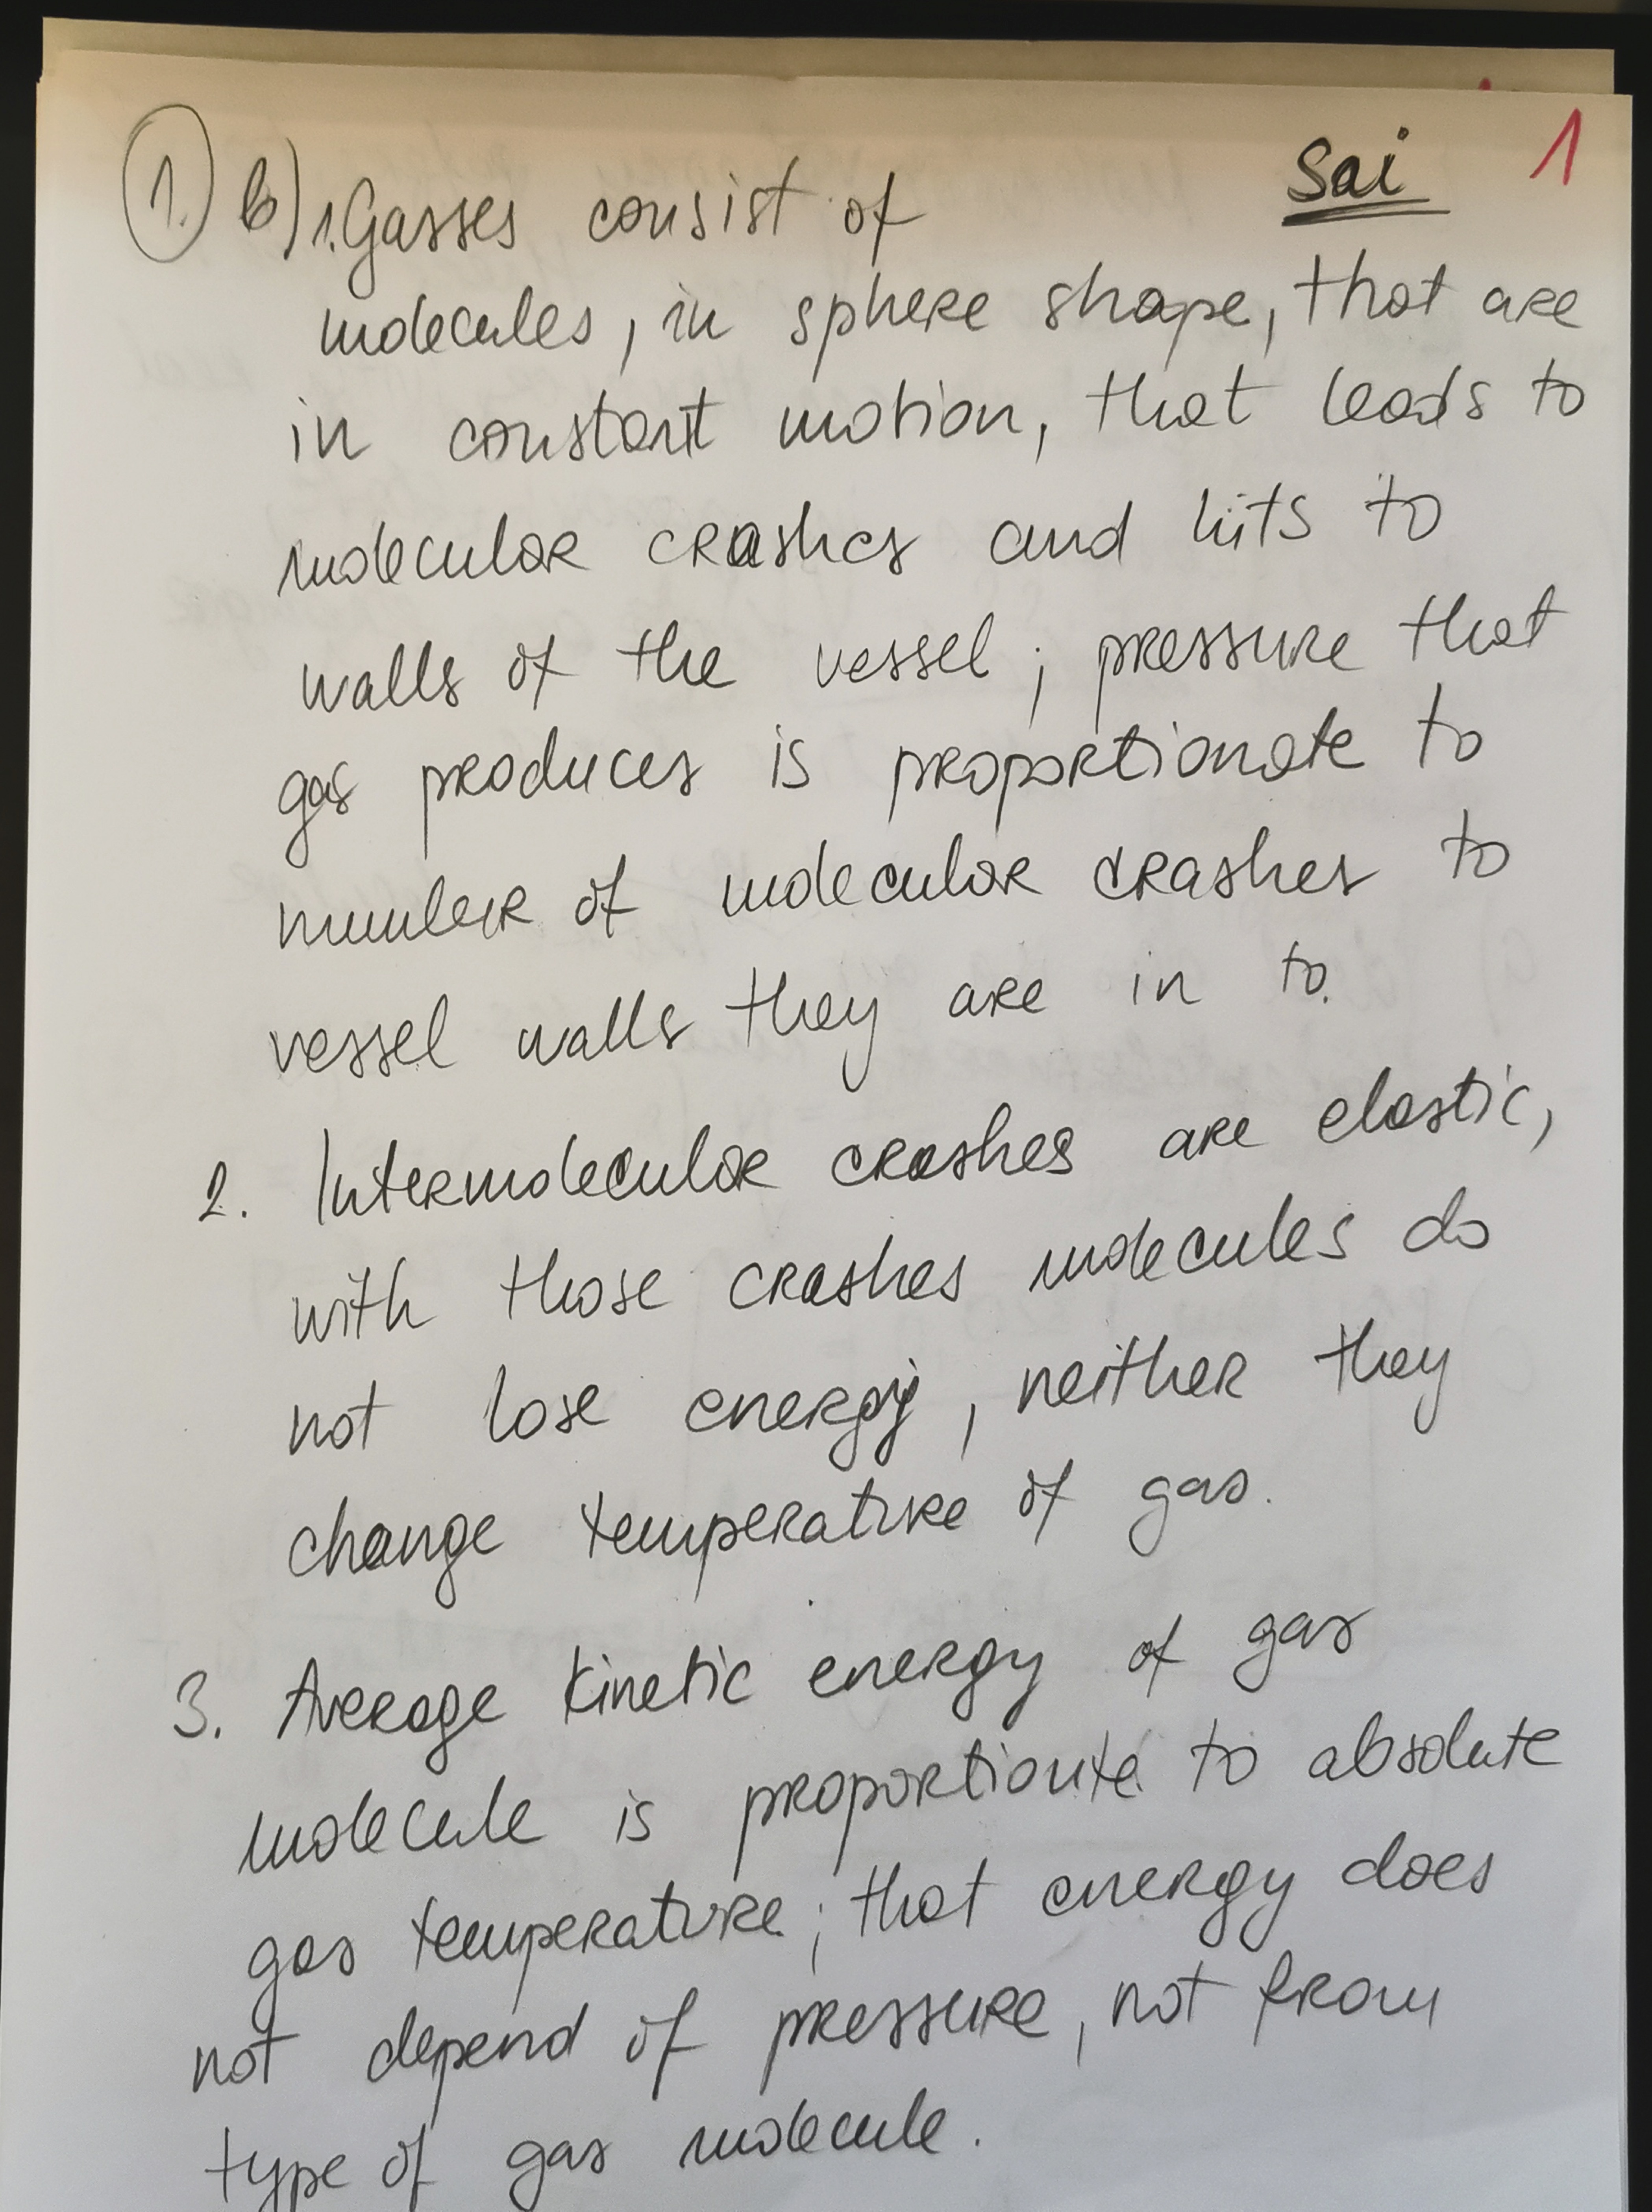 Sai 1
1. b) 1. Gasses consist of
molecules, in sphere shape, that are
in constant motion, that leads to
molecular crashes and hits to
walls of the vessel; pressure that
gas produces is proportionate to
number of molecular crashes to
vessel walls they are in to.
2. Intermolecular crashes are elastic,
with those crashes molecules do
not lose energy, neither they
change temperature of gas.
3. Average kinetic energy of gas
molecule is proportionte to absolute
gas temperature; that energy does
not depend of pressure, not from
type of gas molecule.